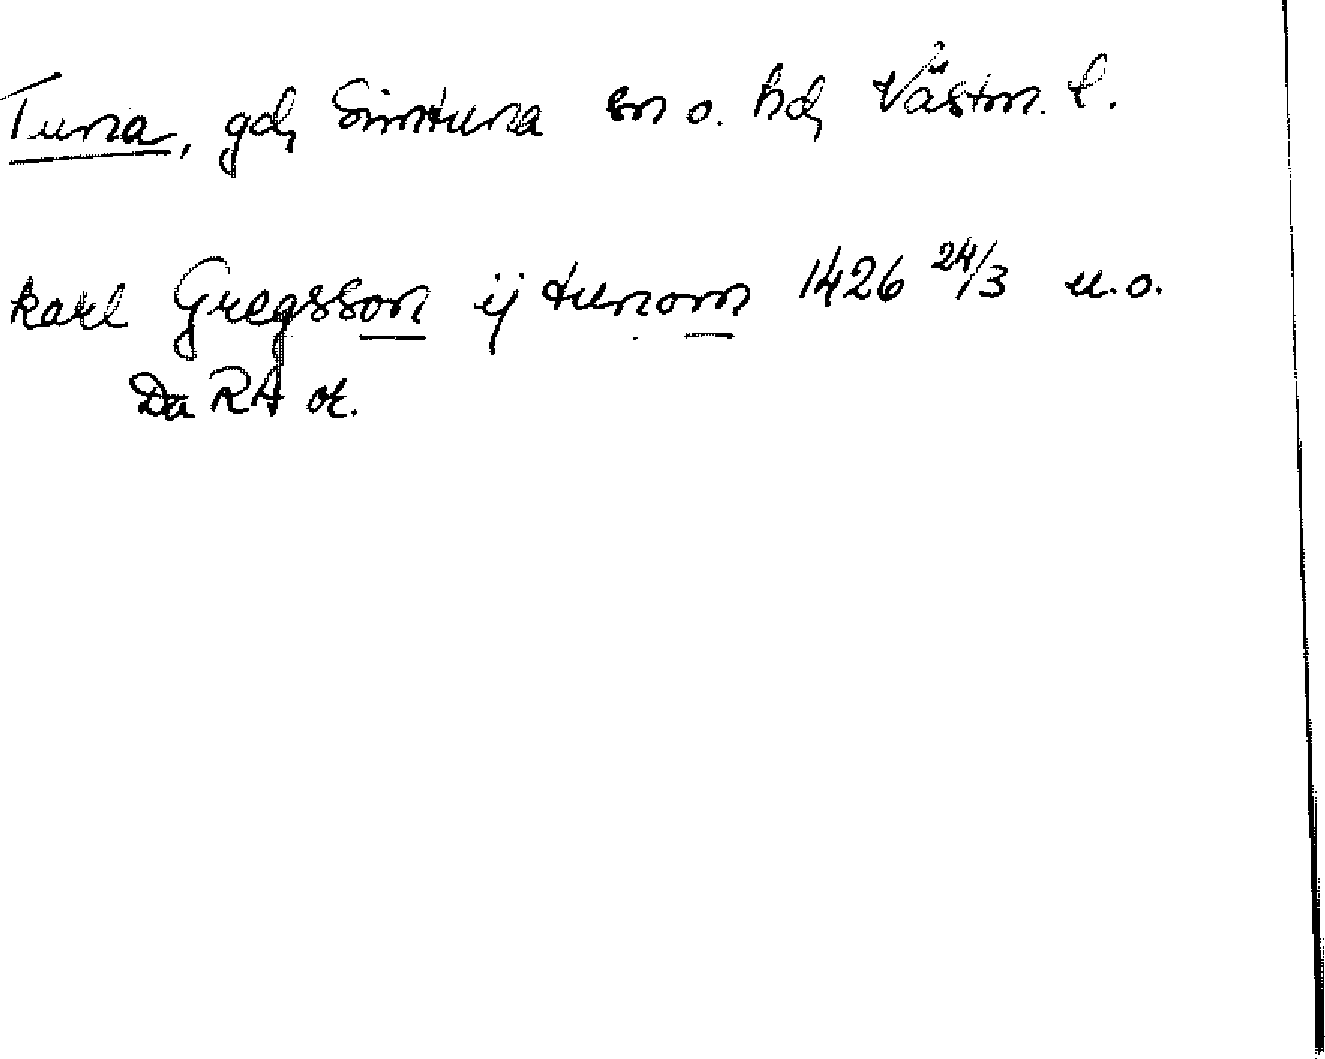 Tuna, gd, Simtuna sn o. hd, Västm. l.
karl Gregsson ij tunom 1426 24/3 u.o.
Da RA or.